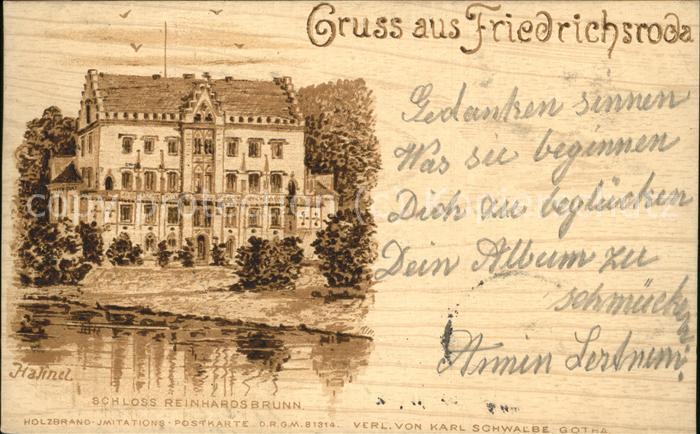 Gruss aus Friedrichsroda
Gedanken sinnen
Was sie beginnen
Dich zu beglücken
Dein Album zu
schmücken
Armin
Hahnel
SCHLOSS REINHARDSBRUNN.
HOLZBRAND-JMITATIONS-POSTKARTE D.R.G.M. 81314. VERL. VON KARL SCHWALBE GOTHA